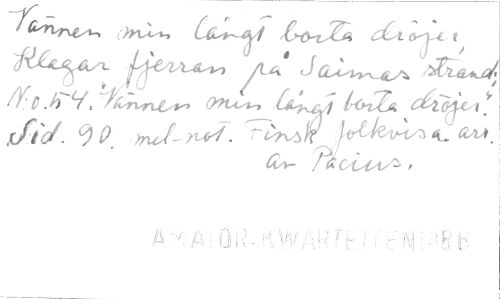 Vännen min långt borta dröjer,
Klagar fjerran på Saimas strand;
N:o 54. "Vännen min långt borta dröjer".
Sid. 90. mel-not. Finsk folkvisa. arr.
av Pacius.
AMATÖR-KWARTETTEN 1886